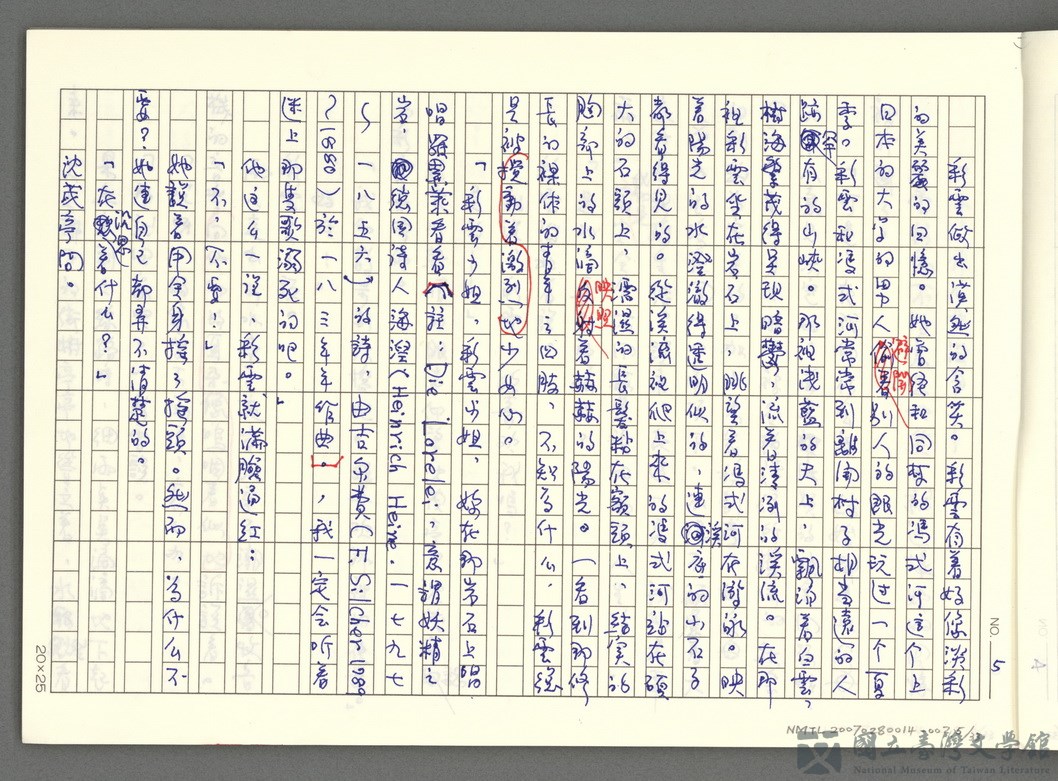 彩雲做出漠然的含笑。彩雲有着好像淡彩
的美麗的回憶。她曾經和同村的馮式河這个上
日本的大学的男人避開別人的眼光玩过一个夏
季。彩雲和馮式河常常到離開村子相當遠的人
跡罕有的山峽。那裡淺藍的天上,飄浮着白雲,
樹海繁茂得呈現暗鬱,流着清冽的溪流。在那
裡彩雲坐在岩石上,眺望着馮式河在游泳。映
着陽光的水澄澈得透明似的,連溪底的小石子
都看得見的。從溪流裡爬上來的馮式河站在碩
大的石頭上,濡濕的長髮粘在額頭上,結実的
胸部上的水滴映照着赫赫的陽光。一看到那修
長的裸体的青年之四肢,不知為什么,彩雲總
是被攪動着激烈地少女心。
「彩雲小姐,彩雲小姐,好在那岩石上唱
唱羅蕾萊看看(註:Die Lorelei,意謂妖精之
岩,德国詩人海涅(Heinrich Heine. 一七九七
~一八五六)的詩,由吉尔費(F. Silcher 1989
~1860)於一八三年年作曲。,我一定会听着
迷上那隻歌溺死的吧。」
他这么一説,彩雲就滿臉通紅:
「不,不要!」
她説着用全身搖了搖頭。然而,為什么不
要?她連自己都弄不清楚的。
「在沉思着什么?」
沈茂亭問。
NO. 5
20×25
NMTL20070280014
國立臺灣文学館
National Museum of Taiwan Literature